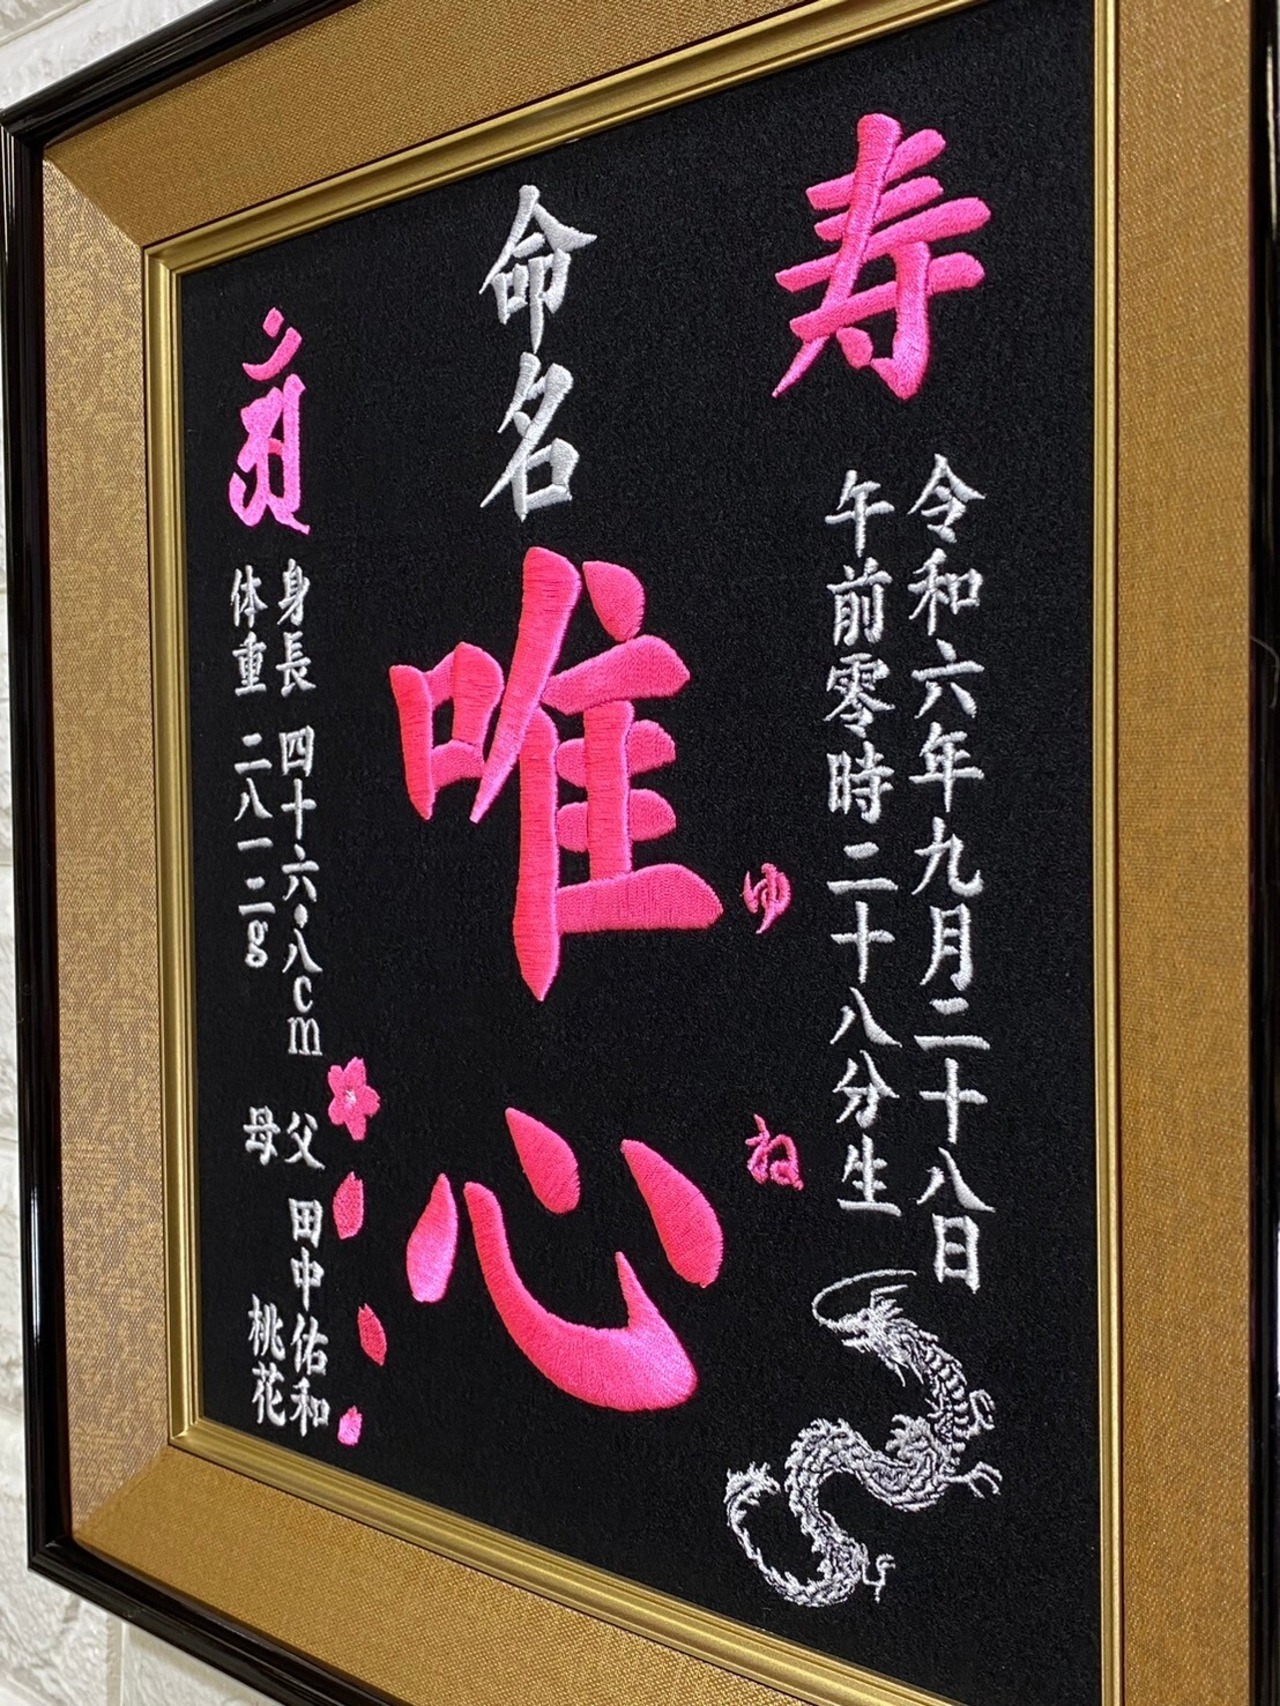 寿
令和六年九月二十八日
午前零時二十八分生
命名
唯心
ゆね
身長 四十六・八cm
体重 二八一二g
父 田中佑和
母 桃花